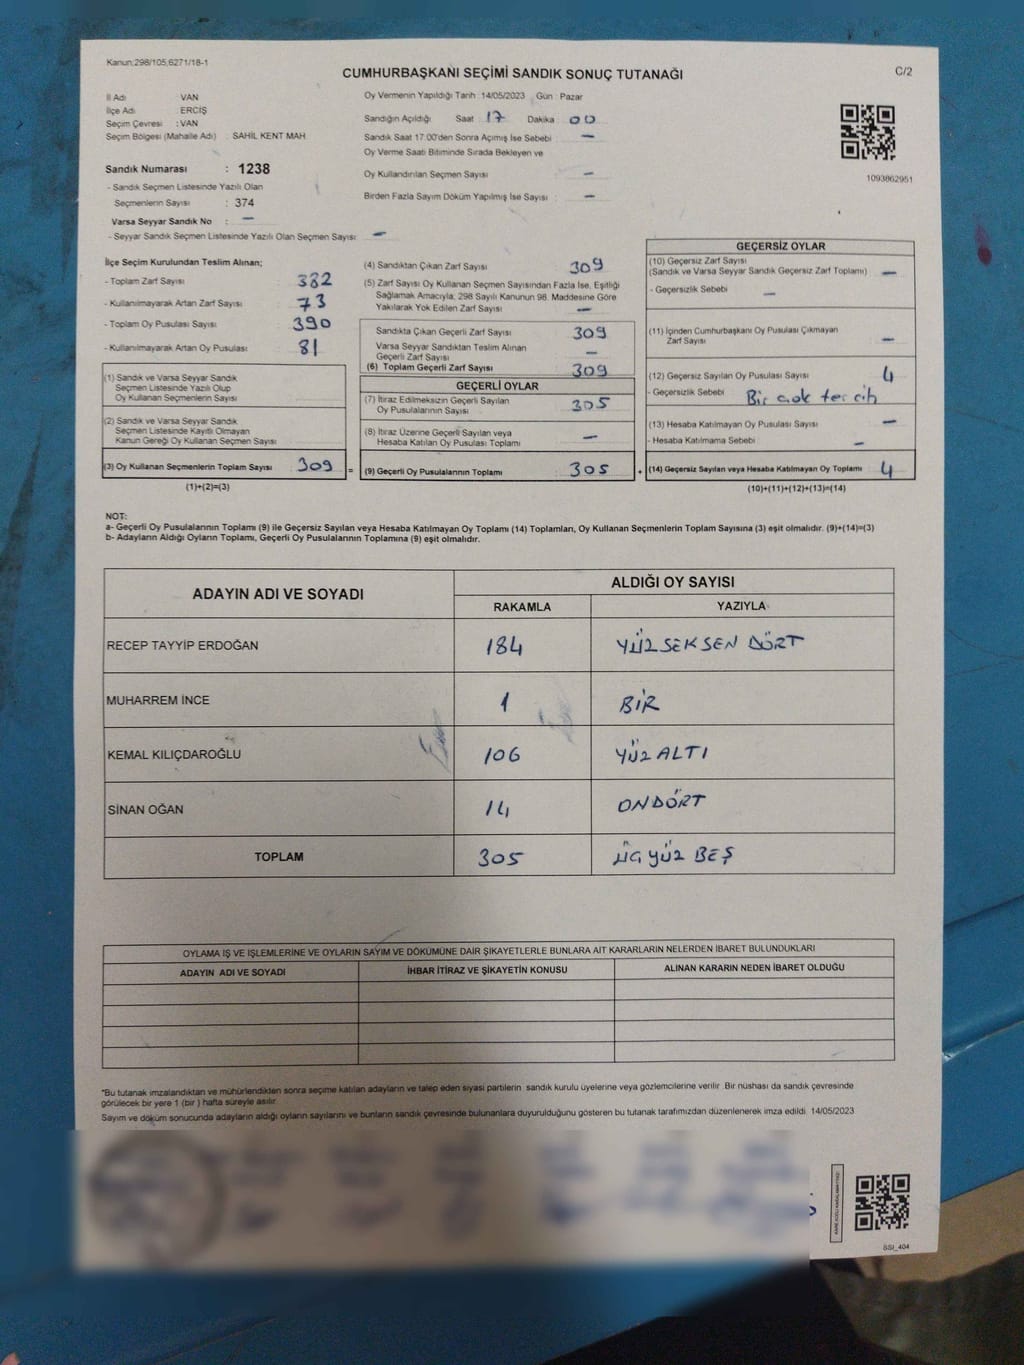 Kanun;298/105,6271/18-1
CUMHURBAŞKANI SEÇİMİ SANDIK SONUÇ TUTANAĞI
C/2
İl Adı : VAN
İlçe Adı : ERCİŞ
Seçim Çevresi : VAN
Seçim Bölgesi (Mahalle Adı) : SAHİL KENT MAH
Sandık Numarası : 1238
- Sandık Seçmen Listesinde Yazılı Olan
Seçmenlerin Sayısı : 374
Varsa Seyyar Sandık No : –
- Seyyar Sandık Seçmen Listesinde Yazılı Olan Seçmen Sayısı: –
Oy Vermenin Yapıldığı Tarih :14/05/2023 Gün : Pazar
Sandığın Açıldığı Saat : 17 Dakika : 00
Sandık Saat 17.00'den Sonra Açılmış İse Sebebi : –
Oy Verme Saati Bitiminde Sırada Bekleyen ve
Oy Kullandırılan Seçmen Sayısı : –
Birden Fazla Sayım Döküm Yapılmış İse Sayısı : –
1093862951
İlçe Seçim Kurulundan Teslim Alınan;
- Toplam Zarf Sayısı : 382
- Kullanılmayarak Artan Zarf Sayısı : 73
- Toplam Oy Pusulası Sayısı : 390
- Kullanılmayarak Artan Oy Pusulası : 81
(1) Sandık ve Varsa Seyyar Sandık
Seçmen Listesinde Yazılı Olup
Oy Kullanan Seçmenlerin Sayısı
(2) Sandık ve Varsa Seyyar Sandık
Seçmen Listesinde Kayıtlı Olmayan
Kanun Gereği Oy Kullanan Seçmen Sayısı
(3) Oy Kullanan Seçmenlerin Toplam Sayısı : 309 =
(1)+(2)=(3)
(4) Sandıktan Çıkan Zarf Sayısı : 309
(5) Zarf Sayısı Oy Kullanan Seçmen Sayısından Fazla İse, Eşitliği
Sağlamak Amacıyla; 298 Sayılı Kanunun 98. Maddesine Göre
Yakılarak Yok Edilen Zarf Sayısı : –
Sandıkta Çıkan Geçerli Zarf Sayısı : 309
Varsa Seyyar Sandıktan Teslim Alınan
Geçerli Zarf Sayısı : –
(6) Toplam Geçerli Zarf Sayısı : 309
GEÇERLİ OYLAR
(7) İtiraz Edilmeksizin Geçerli Sayılan
Oy Pusulalarının Sayısı : 305
(8) İtiraz Üzerine Geçerli Sayılan veya
Hesaba Katılan Oy Pusulası Toplamı : –
(9) Geçerli Oy Pusulalarının Toplamı : 305 +
GEÇERSİZ OYLAR
(10) Geçersiz Zarf Sayısı
(Sandık ve Varsa Seyyar Sandık Geçersiz Zarf Toplamı) : –
- Geçersizlik Sebebi : –
(11) İçinden Cumhurbaşkanı Oy Pusulası Çıkmayan
Zarf Sayısı : –
(12) Geçersiz Sayılan Oy Pusulası Sayısı : 4
- Geçersizlik Sebebi : Bir çok tercih
(13) Hesaba Katılmayan Oy Pusulası Sayısı : –
- Hesaba Katılmama Sebebi : –
(14) Geçersiz Sayılan veya Hesaba Katılmayan Oy Toplamı : 4
(10)+(11)+(12)+(13)=(14)
NOT:
a- Geçerli Oy Pusulalarının Toplamı (9) ile Geçersiz Sayılan veya Hesaba Katılmayan Oy Toplamı (14) Toplamları, Oy Kullanan Seçmenlerin Toplam Sayısına (3) eşit olmalıdır. (9)+(14)=(3)
b- Adayların Aldığı Oyların Toplamı, Geçerli Oy Pusulalarının Toplamına (9) eşit olmalıdır.
ADAYIN ADI VE SOYADI
ALDIĞI OY SAYISI
RAKAMLA YAZIYLA
RECEP TAYYİP ERDOĞAN 184 YÜZ SEKSEN DÖRT
MUHARREM İNCE 1 BİR
KEMAL KILIÇDAROĞLU 106 YÜZ ALTI
SİNAN OĞAN 14 ONDÖRT
TOPLAM 305 ÜÇ YÜZ BEŞ
OYLAMA İŞ VE İŞLEMLERİNE VE OYLARIN SAYIM VE DÖKÜMÜNE DAİR ŞİKAYETLERLE BUNLARA AİT KARARLARIN NELERDEN İBARET BULUNDUKLARI
ADAYIN ADI VE SOYADI İHBAR İTİRAZ VE ŞİKAYETİN KONUSU ALINAN KARARIN NEDEN İBARET OLDUĞU
*Bu tutanak imzalandıktan ve mühürlendikten sonra seçime katılan adayların ve talep eden siyasi partilerin sandık kurulu üyelerine veya gözlemcilerine verilir. Bir nüshası da sandık çevresinde
görülecek bir yere 1 (bir ) hafta süreyle asılır.
Sayım ve döküm sonucunda adayların aldığı oyların sayılarını ve bunların sandık çevresinde bulunanlara duyurulduğunu gösteren bu tutanak tarafımızdan düzenlenerek imza edildi. 14/05/2023
SSI_404